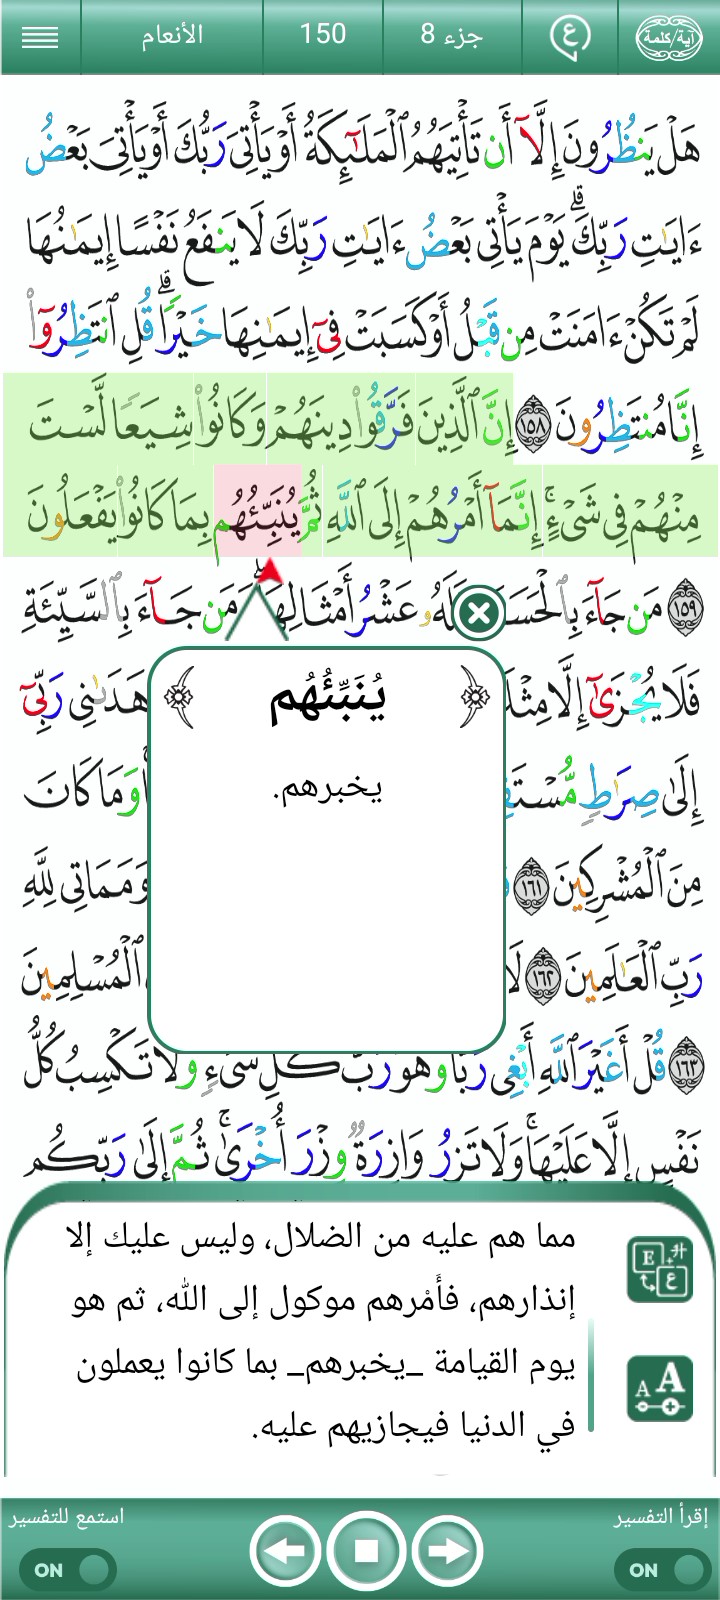 آية/كلمة
ع
جزء 8
150
الأنعام
هَلْ يَنظُرُونَ إِلَّآ أَن تَأْتِيَهُمُ ٱلْمَلَـٰٓئِكَةُ أَوْ يَأْتِىَ رَبُّكَ أَوْ يَأْتِىَ بَعْضُ
ءَايَـٰتِ رَبِّكَ ۗ يَوْمَ يَأْتِى بَعْضُ ءَايَـٰتِ رَبِّكَ لَا يَنفَعُ نَفْسًا إِيمَـٰنُهَا
لَمْ تَكُنْ ءَامَنَتْ مِن قَبْلُ أَوْ كَسَبَتْ فِىٓ إِيمَـٰنِهَا خَيْرًا ۗ قُلِ ٱنتَظِرُوٓا۟
إِنَّا مُنتَظِرُونَ ١٥٨ إِنَّ ٱلَّذِينَ فَرَّقُوا۟ دِينَهُمْ وَكَانُوا۟ شِيَعًا لَّسْتَ
مِنْهُمْ فِى شَىْءٍ ۚ إِنَّمَآ أَمْرُهُمْ إِلَى ٱللَّهِ ثُمَّ يُنَبِّئُهُم بِمَا كَانُوا۟ يَفْعَلُونَ
١٥٩ مَن جَآءَ بِٱلْحَسَ لَهُۥ عَشْرُ أَمْثَالِهَا ۖ وَمَن جَآءَ بِٱلسَّيِّئَةِ
فَلَا يُجْزَىٰٓ إِلَّا مِثْلَ هَدَىٰنِى رَبِّىٓ
إِلَىٰ صِرَٰطٍ مُّسْتَقِ وَمَا كَانَ
مِنَ ٱلْمُشْرِكِينَ ١٦١ وَمَمَاتِى لِلَّهِ
رَبِّ ٱلْعَـٰلَمِينَ ١٦٢ لَا ٱلْمُسْلِمِينَ
١٦٣ قُلْ أَغَيْرَ ٱللَّهِ أَبْغِى رَبًّا وَهُوَ رَبُّ كُلِّ شَىْءٍ ۚ وَلَا تَكْسِبُ كُلُّ
نَفْسٍ إِلَّا عَلَيْهَا ۚ وَلَا تَزِرُ وَازِرَةٌ وِزْرَ أُخْرَىٰ ۚ ثُمَّ إِلَىٰ رَبِّكُم
يُنَبِّئُهُم
يخبرهم.
مما هم عليه من الضلال، وليس عليك إلا
إنذارهم، فأَمْرهم موكول إلى الله، ثم هو
يوم القيامة _يخبرهم_ بما كانوا يعملون
في الدنيا فيجازيهم عليه.
إقرأ التفسير
ON
استمع للتفسير
ON